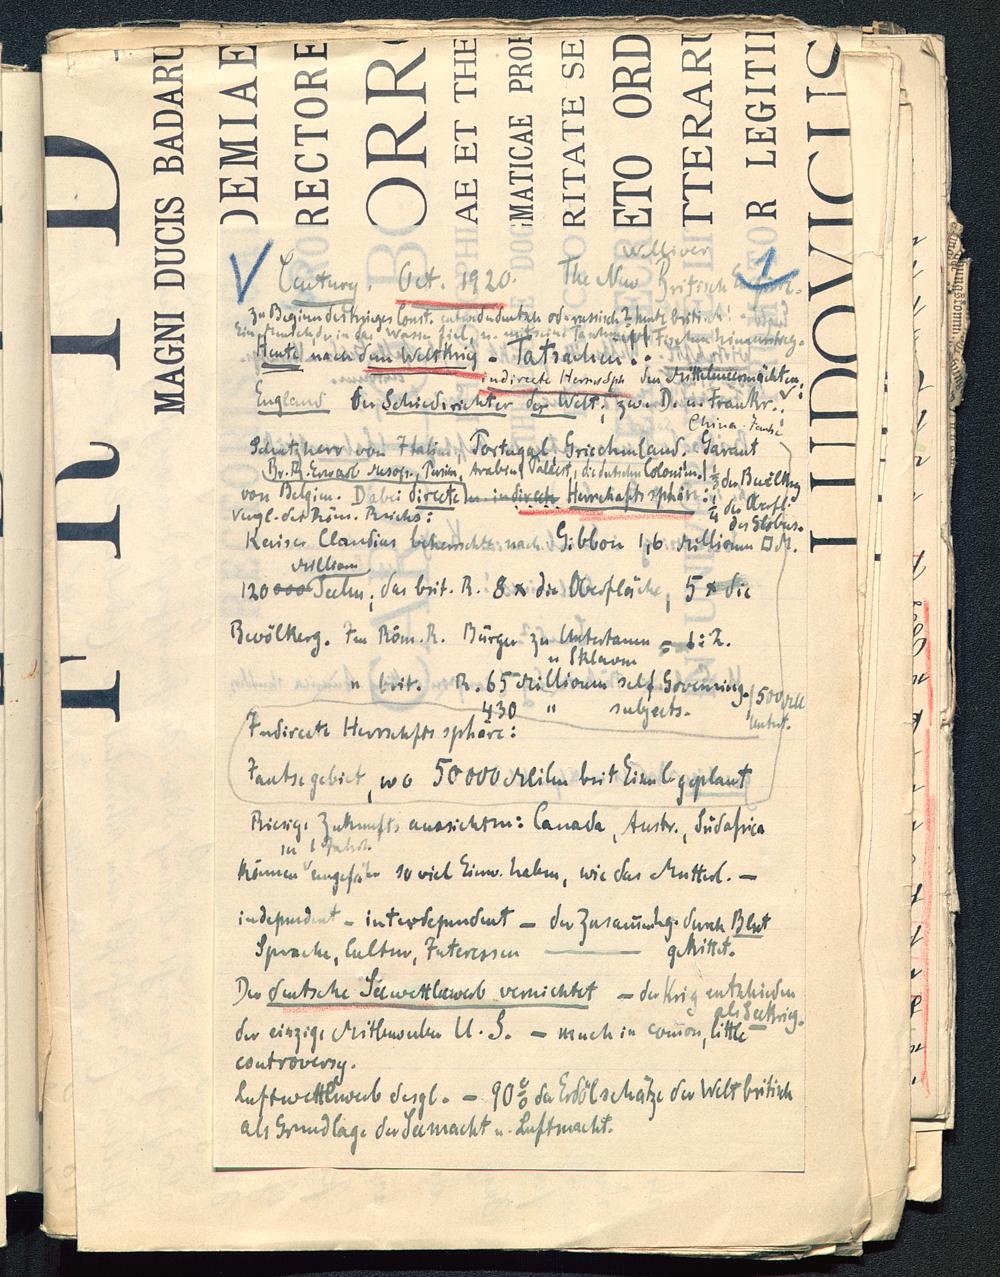 MAGNI DUCIS BADARU
DEMIAE
RECTORE
BORRO
PHIAE ET THE
GMATICAE PROF
RITATE SE
ETO ORD
TTERARU
OR LEGITI
LUDOVICIS
FRID
Williver
Century. Oct. 1920. The New British Empire.
1
Zu Beginn des Krieges Const. oder russisch? heute britisch!
Heute nach dem Weltkrieg - Tatsachen!
indirecte Herrschsph den Mittelmeermächten
England der Schiedsrichter der Welt, zw. D. u. Frankr.
China
Schutzherr von Italien, Portugal Griechenland. Garant
Br. R. Erwarb Mesop., Persien, Arabien, Paläst., die deutschen Colonien!
1/4 der Bevölkerg
von Belgien. Dabei directe u. indirecte Herrschaftssphäre:
1/4 der Oberfl
des Globus.
vergl. des Röm. Reichs:
Kaiser Claudius beherrschte nach Gibbon 1,6 Millionen □M.
Million
120000 Seelen, das brit. R. 8 x die Oberfläche, 5 x die
Bevölkerg. Im Röm. R. Bürger zu Untertanen = 1:2.
u Sklaven
" brit. R. 65 Millionen self Governing.
430 " subjects.
500 Mill
Untert.
Indirecte Herrschaftssphäre:
Jantsegebiet, wo 50000 Meilen brit Eisenb. geplant
Riesige Zukunftsaussichten: Canada, Austr., Südafrica
in 1 Jahrh.
können ungefähr so viel Einw. haben, wie das Mutterl. —
independent - interdependent - der Zusammenhg durch Blut
Sprache, Cultur, Interessen — gekittet.
Der deutsche Seewettbewerb vernichtet — der Krieg entschieden
als Seekrieg.
der einzige Mitbewerber U. S. — much in common, little
controversy.
Luftwettbewerb desgl. — 90% der Erdölschätze der Welt britisch
als Grundlage der Seemacht u. Luftmacht.